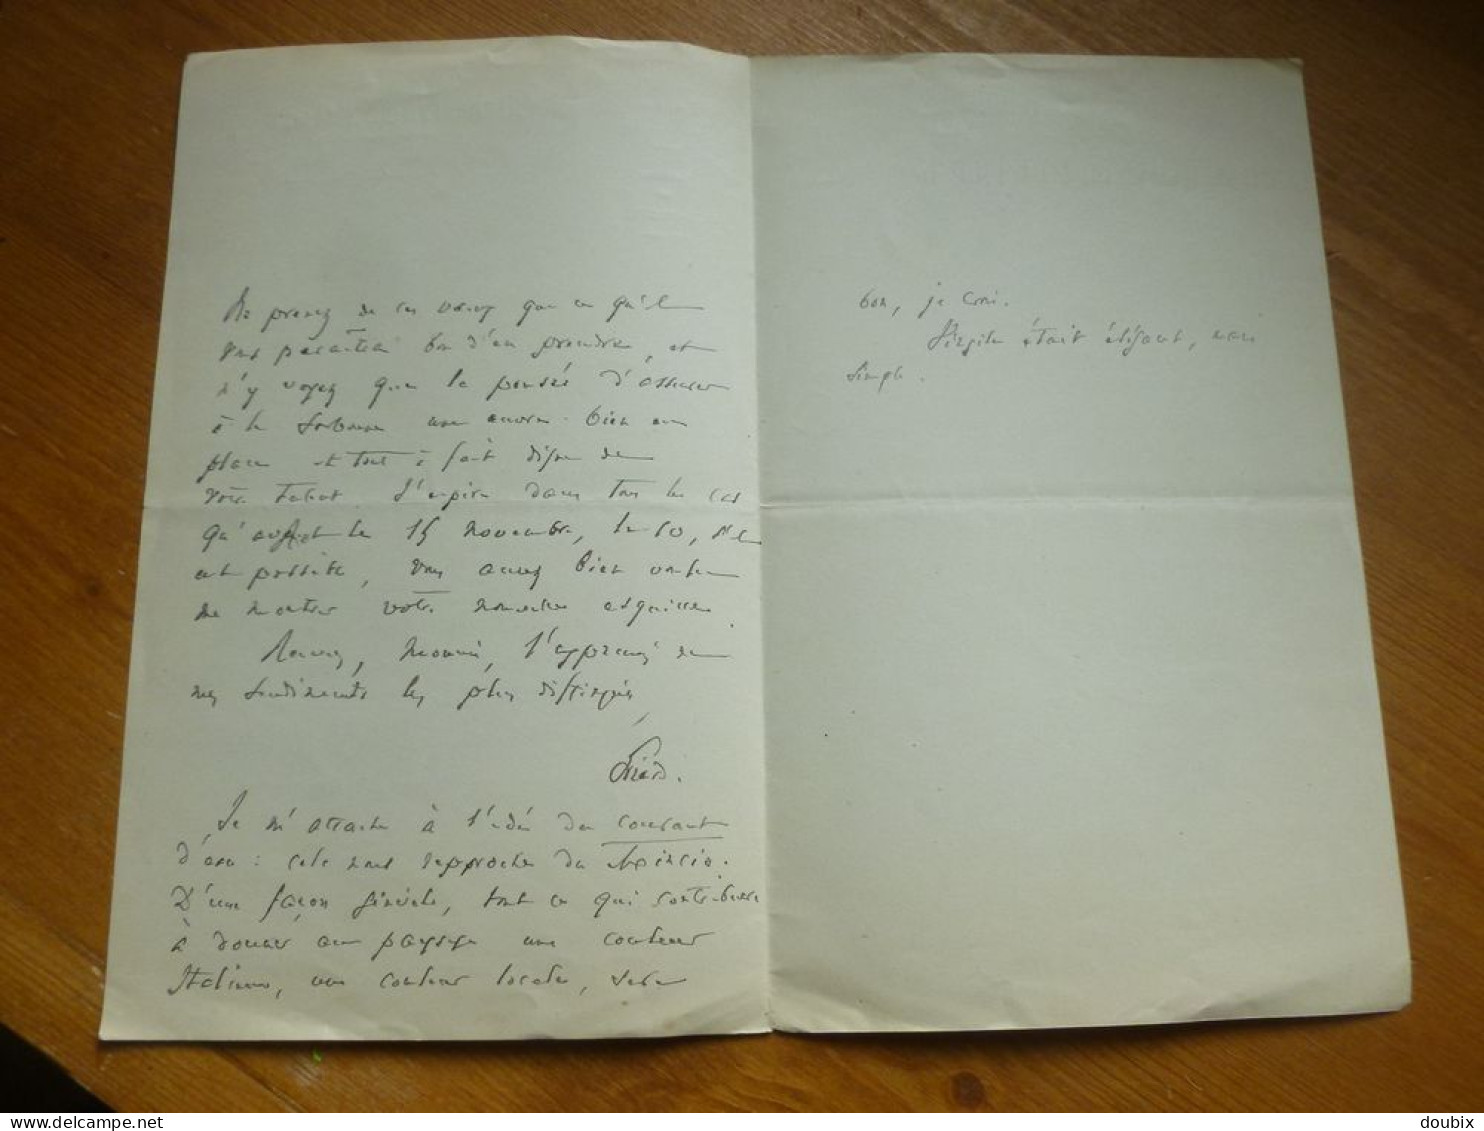 Ne prenez de ces vœux que ce qu'il
vous paraîtra bon d'en prendre, et
n'y voyez que la pensée d'assurer
à la Sorbonne une œuvre bien en
place et tout à fait digne de
votre talent. J'espère dans tous les cas
qu'avant le 15 novembre, le 10, s'il
est possible, vous aurez bien voulu
me montrer votre nouvelle esquisse.
Recevez, Monsieur, l'expression de
mes sentiments les plus distingués,
Gréard.
Je m'attache à l'idée du courant
d'eau : cela nous rapproche du Mincio.
D'une façon générale, tout ce qui contribuera
à donner au paysage une couleur
Italienne, une couleur locale, sera
bon, je crois.
Virgile était élégant, mais
simple.
delcampe.net
doubix